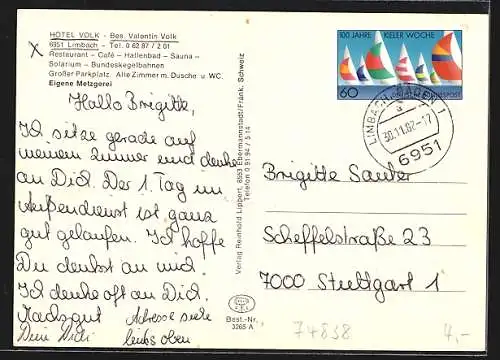 HOTEL VOLK - Bes. Valentin Volk
6951 Limbach - Tel. 0 62 87 / 2 01
Restaurant - Café - Hallenbad - Sauna -
Solarium - Bundeskegelbahnen
Großer Parkplatz Alle Zimmer m. Dusche u. WC.
Eigene Metzgerei
Hallo Brigitte,
Ich sitze gerade auf
meinem Zimmer und denke
an Dich. Der 1. Tag im
Außendienst ist ganz
gut gelaufen. Ich hoffe
Du denkst an mich.
Ich denke oft an Dich.
Machs gut
Dein Didi
Adresse siehe
links oben
Verlag Reinhold Lippert, 8553 Ebermannstadt/Fränk. Schweiz
Telefon 0 91 94 / 5 14
Best.-Nr.
3265 A
100 JAHRE KIELER WOCHE
60 DEUTSCHE BUNDESPOST
LIMBACH, BADEN 1
a
30.11.82-17
6951
Brigitte Sauter
Scheffelstraße 23
7000 Stuttgart 1
74838
4,-